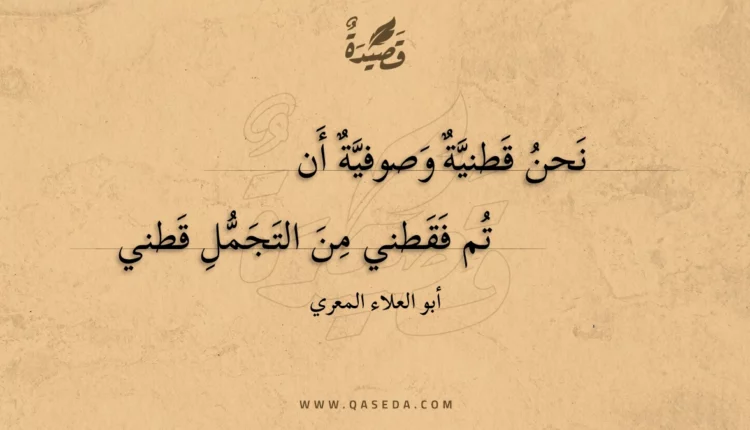 قَصِيْدَةٌ
نَحنُ قَطنيَّةٌ وَصوفيَّةٌ أَن
تُم فَقَطني مِنَ التَجَمُّلِ قَطني
أبو العلاء المعري
WWW.QASEDA.COM